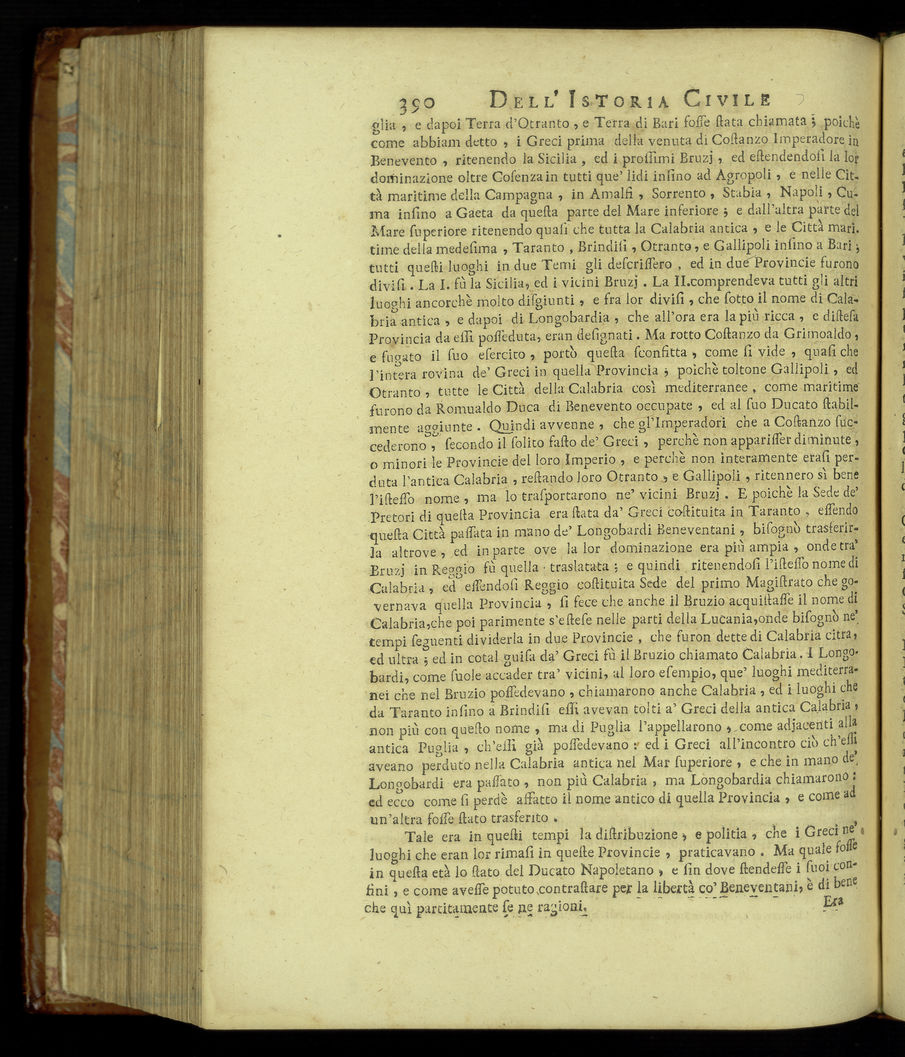 390 DELL' ISTORIA CIVILE
glia , e dapoi Terra d'Otranto , e Terra di Bari foſſe ſtata chiamata ; poichè
come abbiam detto , i Greci prima della venuta di Coſtanzo Imperadore in
Benevento , ritenendo la Sicilia , ed i proſſimi Bruzj , ed eſtendendoſi la lor
dominazione oltre Coſenza in tutti que' lidi inſino ad Agropoli , e nelle Cit-
tà maritime della Campagna , in Amalfi , Sorrento , Stabia , Napoli , Cu-
ma inſino a Gaeta da queſta parte del Mare inferiore ; e dall'altra parte del
Mare ſuperiore ritenendo quaſi che tutta la Calabria antica , e le Città mari.
time della medeſima , Taranto , Brindiſi , Otranto , e Gallipoli inſino a Bari ;
tutti queſti luoghi in due Temi gli deſcriſſero , ed in due Provincie furono
diviſi . La I. fù la Sicilia, ed i vicini Bruzj . La II.comprendeva tutti gli altri
luoghi ancorchè molto diſgiunti , e fra lor diviſi , che ſotto il nome di Cala-
bria antica , e dapoi di Longobardia , che all'ora era la più ricca , e diſteſa
Provincia da eſſi poſſeduta, eran deſignati . Ma rotto Coſtanzo da Grimoaldo ,
e fugato il ſuo eſercito , portò queſta ſconfitta , come ſi vide , quaſi che
l'intera rovina de' Greci in quella Provincia ; poichè toltone Gallipoli , ed
Otranto , tutte le Città della Calabria così mediterranee , come maritime
furono da Romualdo Duca di Benevento occupate , ed al ſuo Ducato ſtabil-
mente aggiunte . Quindi avvenne , che gl'Imperadori che a Coſtanzo ſuc-
cederono , ſecondo il ſolito faſto de' Greci , perchè non appariſſer diminute ,
o minori le Provincie del loro Imperio , e perchè non interamente eraſi per-
duta l'antica Calabria , reſtando loro Otranto , e Gallipoli , ritennero sì bene
l'iſteſſo nome , ma lo traſportarono ne' vicini Bruzj . E poichè la Sede de'
Pretori di queſta Provincia era ſtata da' Greci coſtituita in Taranto , eſſendo
queſta Città paſſata in mano de' Longobardi Beneventani , biſognò trasferir-
la altrove , ed in parte ove la lor dominazione era più ampia , onde tra'
Bruzj in Reggio fù quella traslatata ; e quindi ritenendoſi l'iſteſſo nome di
Calabria , ed eſſendoſi Reggio coſtituita Sede del primo Magiſtrato che go-
vernava quella Provincia , ſi fece che anche il Bruzio acquiſtaſſe il nome di
Calabria,che poi parimente s'eſteſe nelle parti della Lucania,onde biſognò ne'
tempi ſeguenti dividerla in due Provincie , che furon dette di Calabria citra,
ed ultra ; ed in cotal guiſa da' Greci fù il Bruzio chiamato Calabria . I Longo-
bardi, come ſuole accader tra' vicini, al loro eſempio, que' luoghi mediterra-
nei che nel Bruzio poſſedevano , chiamarono anche Calabria , ed i luoghi che
da Taranto inſino a Brindiſi eſſi avevan tolti a' Greci della antica Calabria ,
non più con queſto nome , ma di Puglia l'appellarono , come adjacenti alla
antica Puglia , ch'eſſi già poſſedevano : ed i Greci all'incontro ciò ch'eſſi
aveano perduto nella Calabria antica nel Mar ſuperiore , e che in mano de'
Longobardi era paſſato , non più Calabria , ma Longobardia chiamarono :
ed ecco come ſi perdè affatto il nome antico di quella Provincia , e come ad
un'altra foſſe ſtato trasferito .
Tale era in queſti tempi la diſtribuzione , e politia , che i Greci ne'
luoghi che eran lor rimaſi in queſte Provincie , praticavano . Ma quale foſſe
in queſta età lo ſtato del Ducato Napoletano , e fin dove ſtendeſſe i ſuoi con-
fini , e come aveſſe potuto contraſtare per la libertà co' Beneventani, è di bene
che quì partitamente ſe ne ragioni.
Era